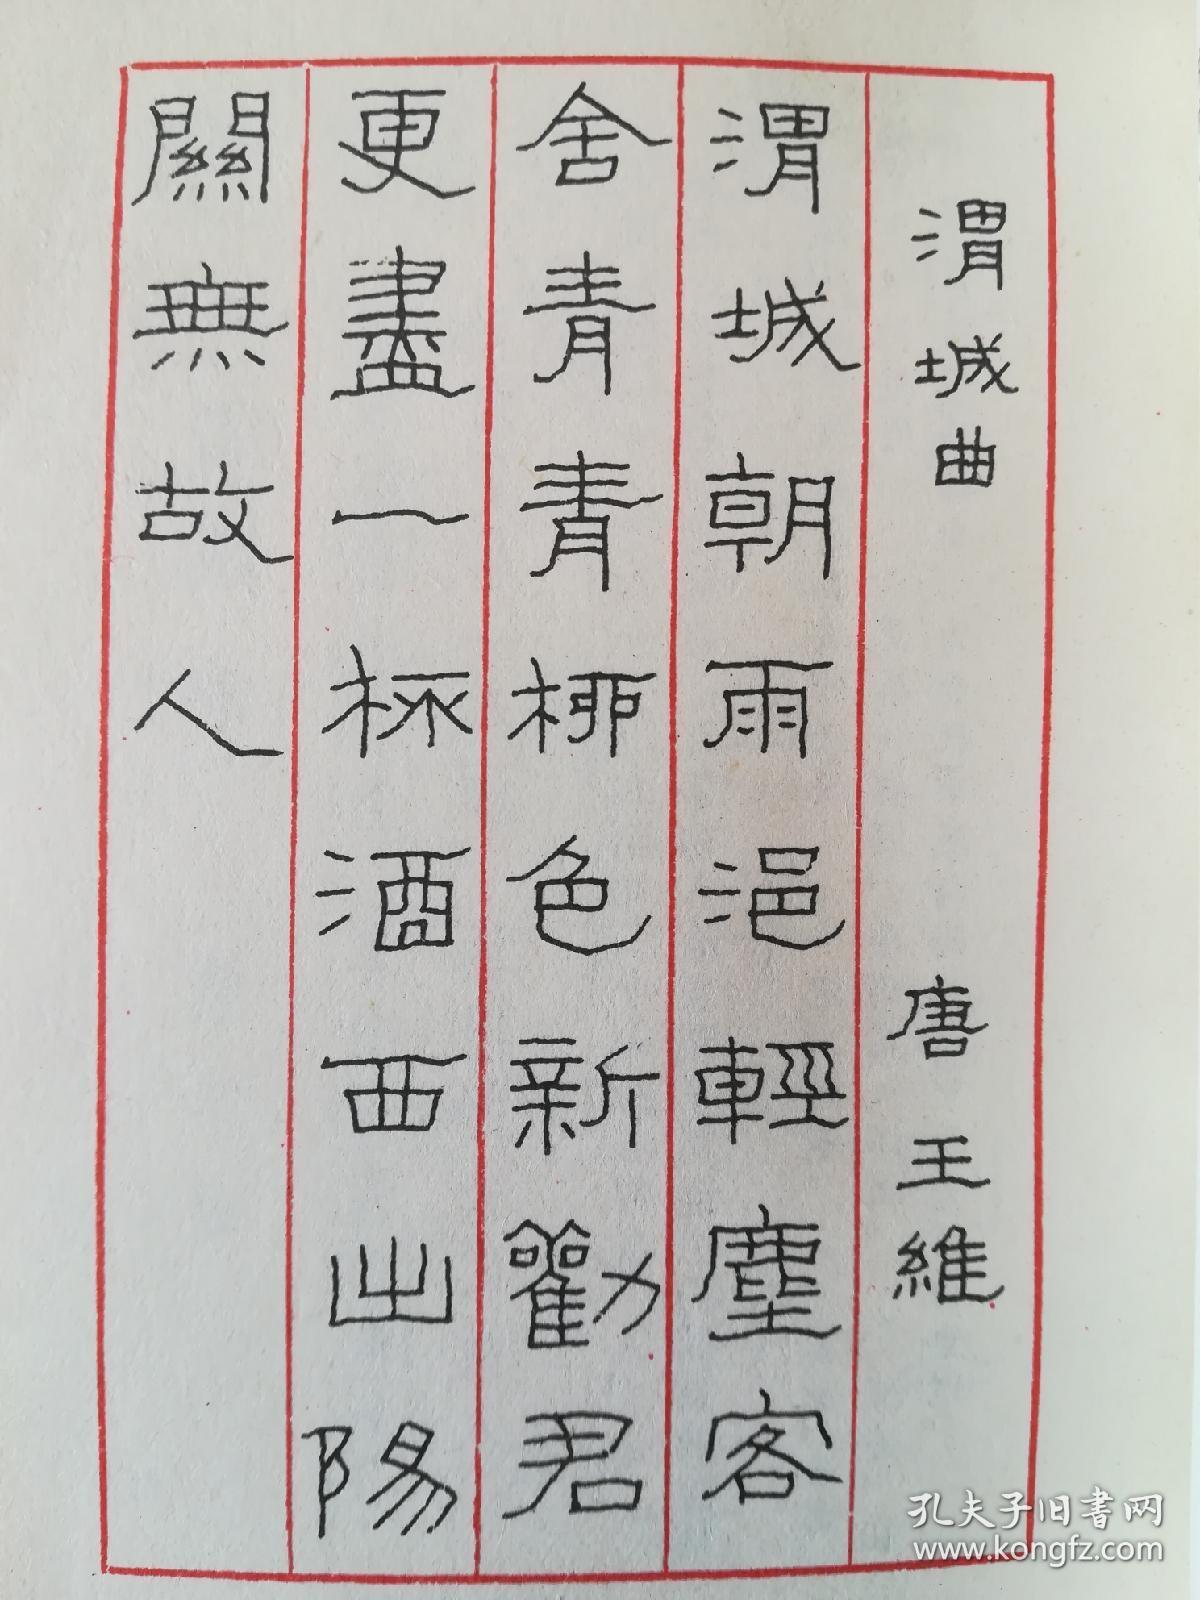 渭城曲 唐 王維
渭城朝雨浥輕塵客
舍青青柳色新勸君
更盡一杯酒西出陽
關無故人
孔夫子旧书网
www.kongfz.com